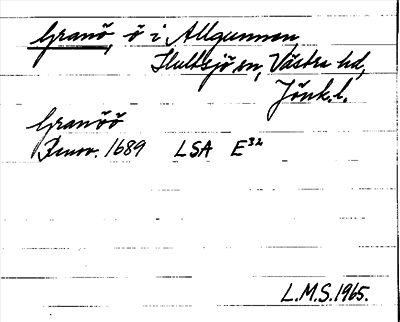 Granö, ö i Allgunnen,
Hultsjö sn, Västra hd,
Jönk. l.
Granöö
Renov. 1689 LSA E³²
L.M.S. 1965.